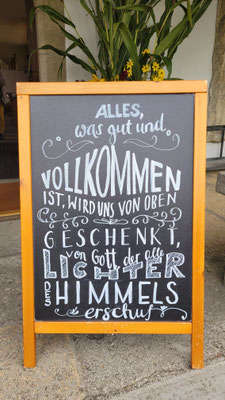 ALLES,
was gut und
VOLLKOMMEN
IST, WIRD UNS VON OBEN
GESCHENKT,
von Gott, der alle
LICHTER
DES HIMMELS
erschuf